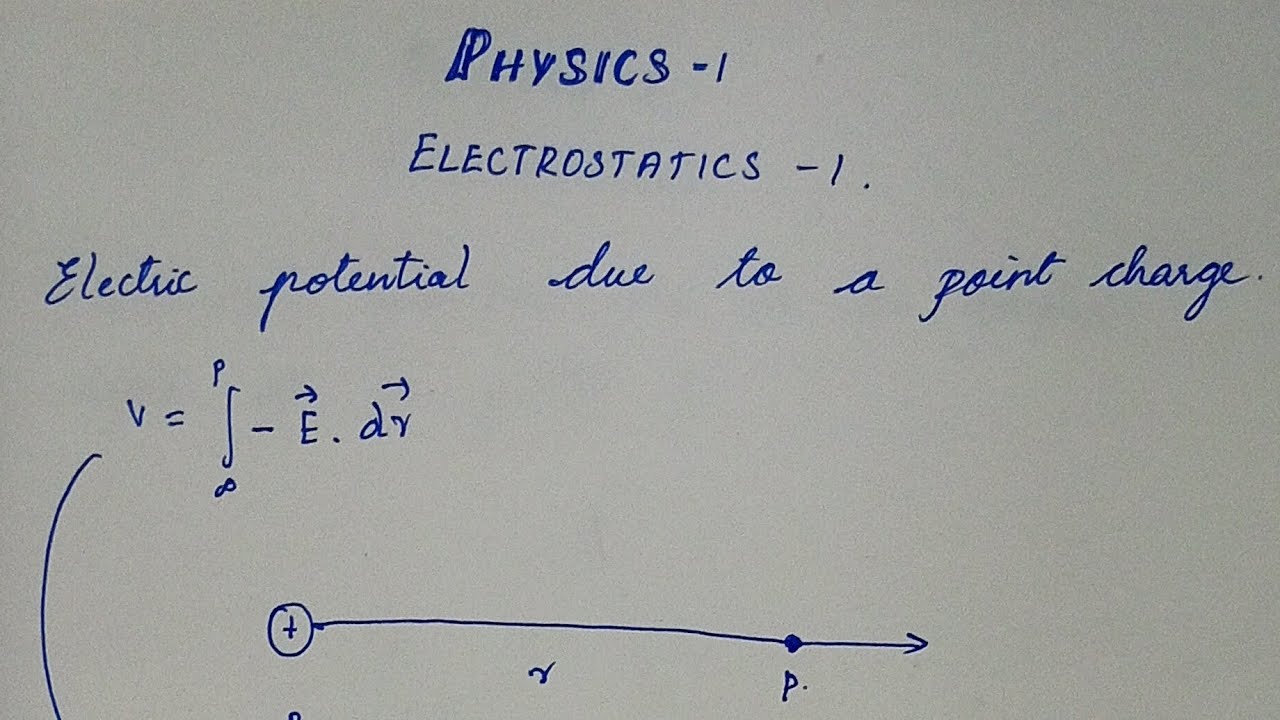 PHYSICS -1
ELECTROSTATICS -1.
Electric potential due to a point charge.
V = ∫ₚ^∞ placeholder